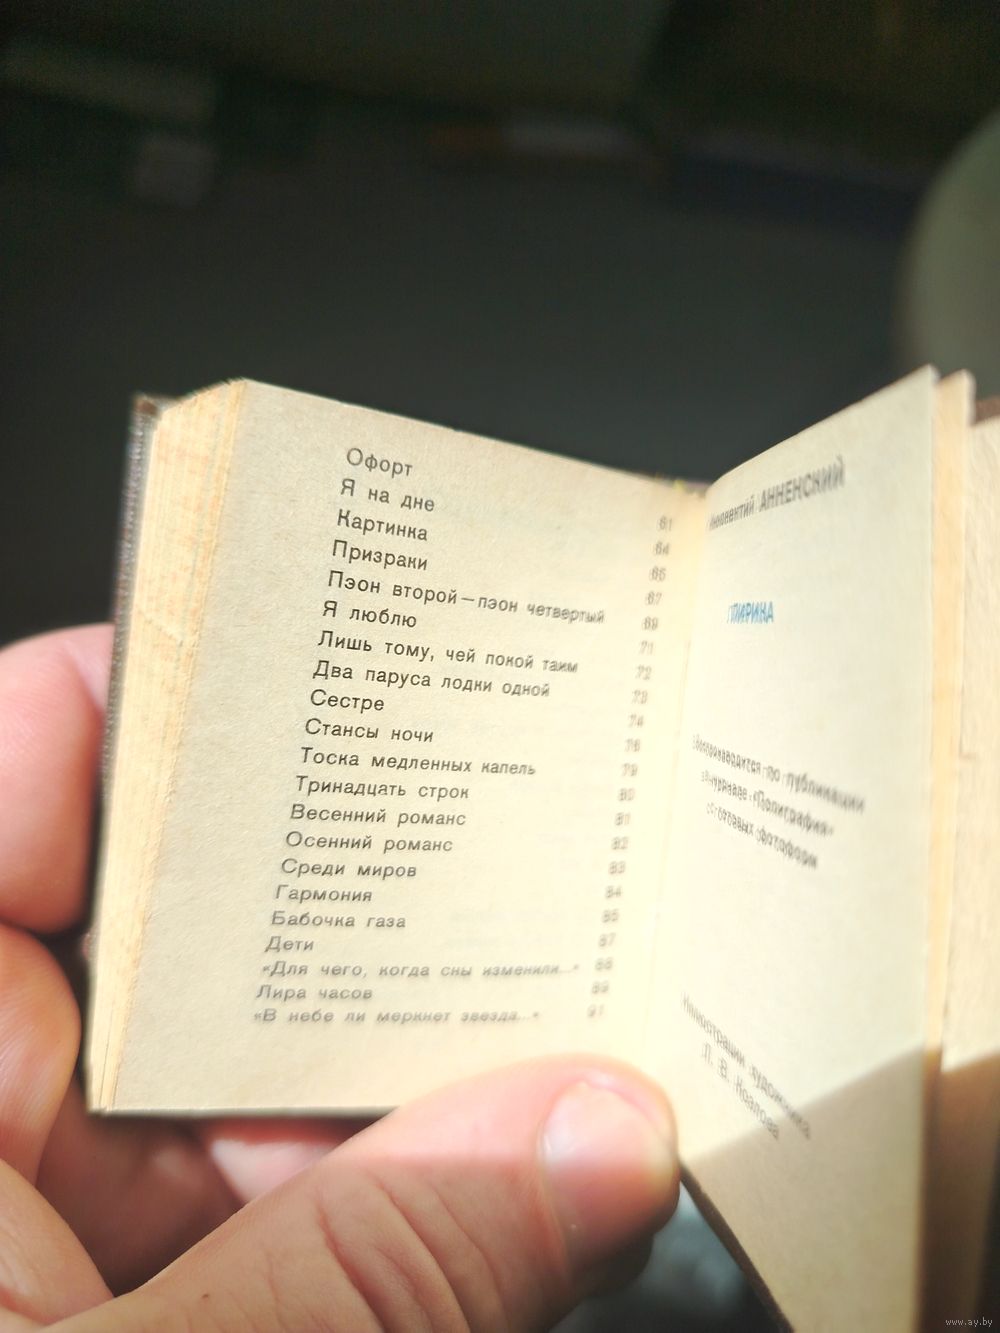 Офорт 61
Я на дне 64
Картинка 65
Призраки 67
Пэон второй — пэон четвертый 69
Я люблю 71
Лишь тому, чей покой таим 72
Два паруса лодки одной 73
Сестре 74
Стансы ночи 76
Тоска медленных капель 79
Тринадцать строк 80
Весенний романс 81
Осенний романс 82
Среди миров 83
Гармония 84
Бабочка газа 85
Дети 87
«Для чего, когда сны изменили...» 88
Лира часов 89
«В небе ли меркнет звезда...» 91
Иннокентий АННЕНСКИЙ
ЛИРИКА
Воспроизводится по публикации
«Полиграфия»
с готовых фотоформ
Иллюстрации художника
Л. В. Козлова
www.ay.by